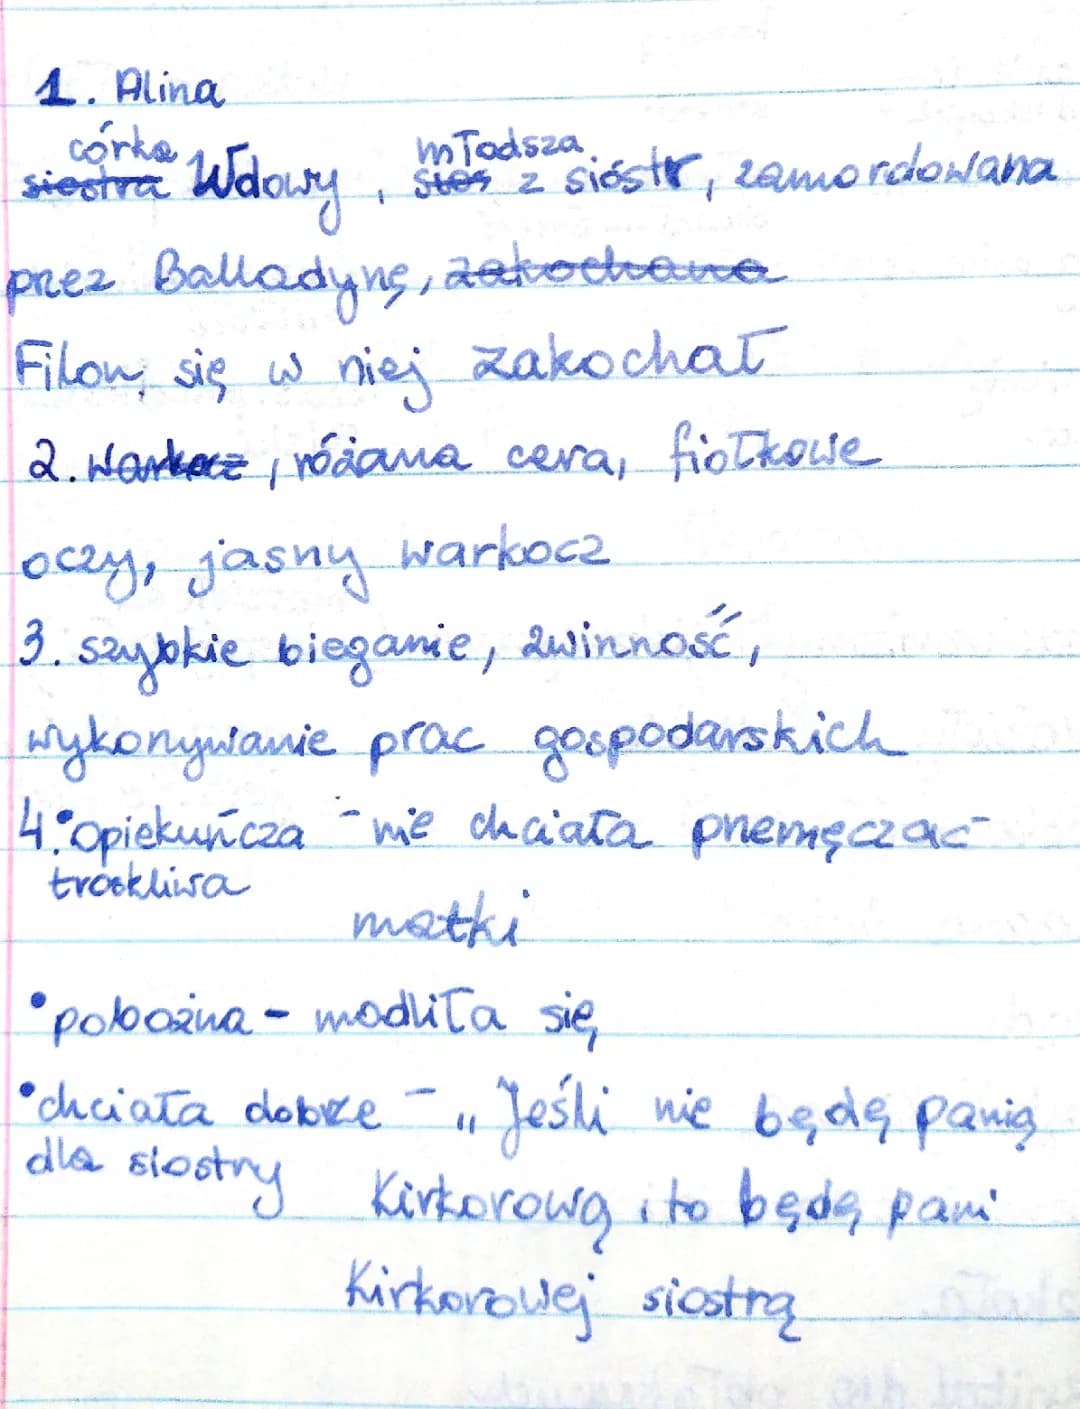 1. Alina
córka młodsza
siostra Wdowy, sios z sióstr, zamordowana
przez Balladynę, zakochana
Filon się w niej zakochał
2. warkocz, różana cera, fiołkowe
oczy, jasny warkocz
3. szybkie bieganie, zwinność,
wykonywanie prac gospodarskich
4. • opiekuńcza - nie chciała przemęczać
troskliwa
matki
• pobożna - modliła się
• chciała dobrze - „Jeśli nie będę panią
dla siostry
Kirkorową, to będę pani
Kirkorowej siostrą